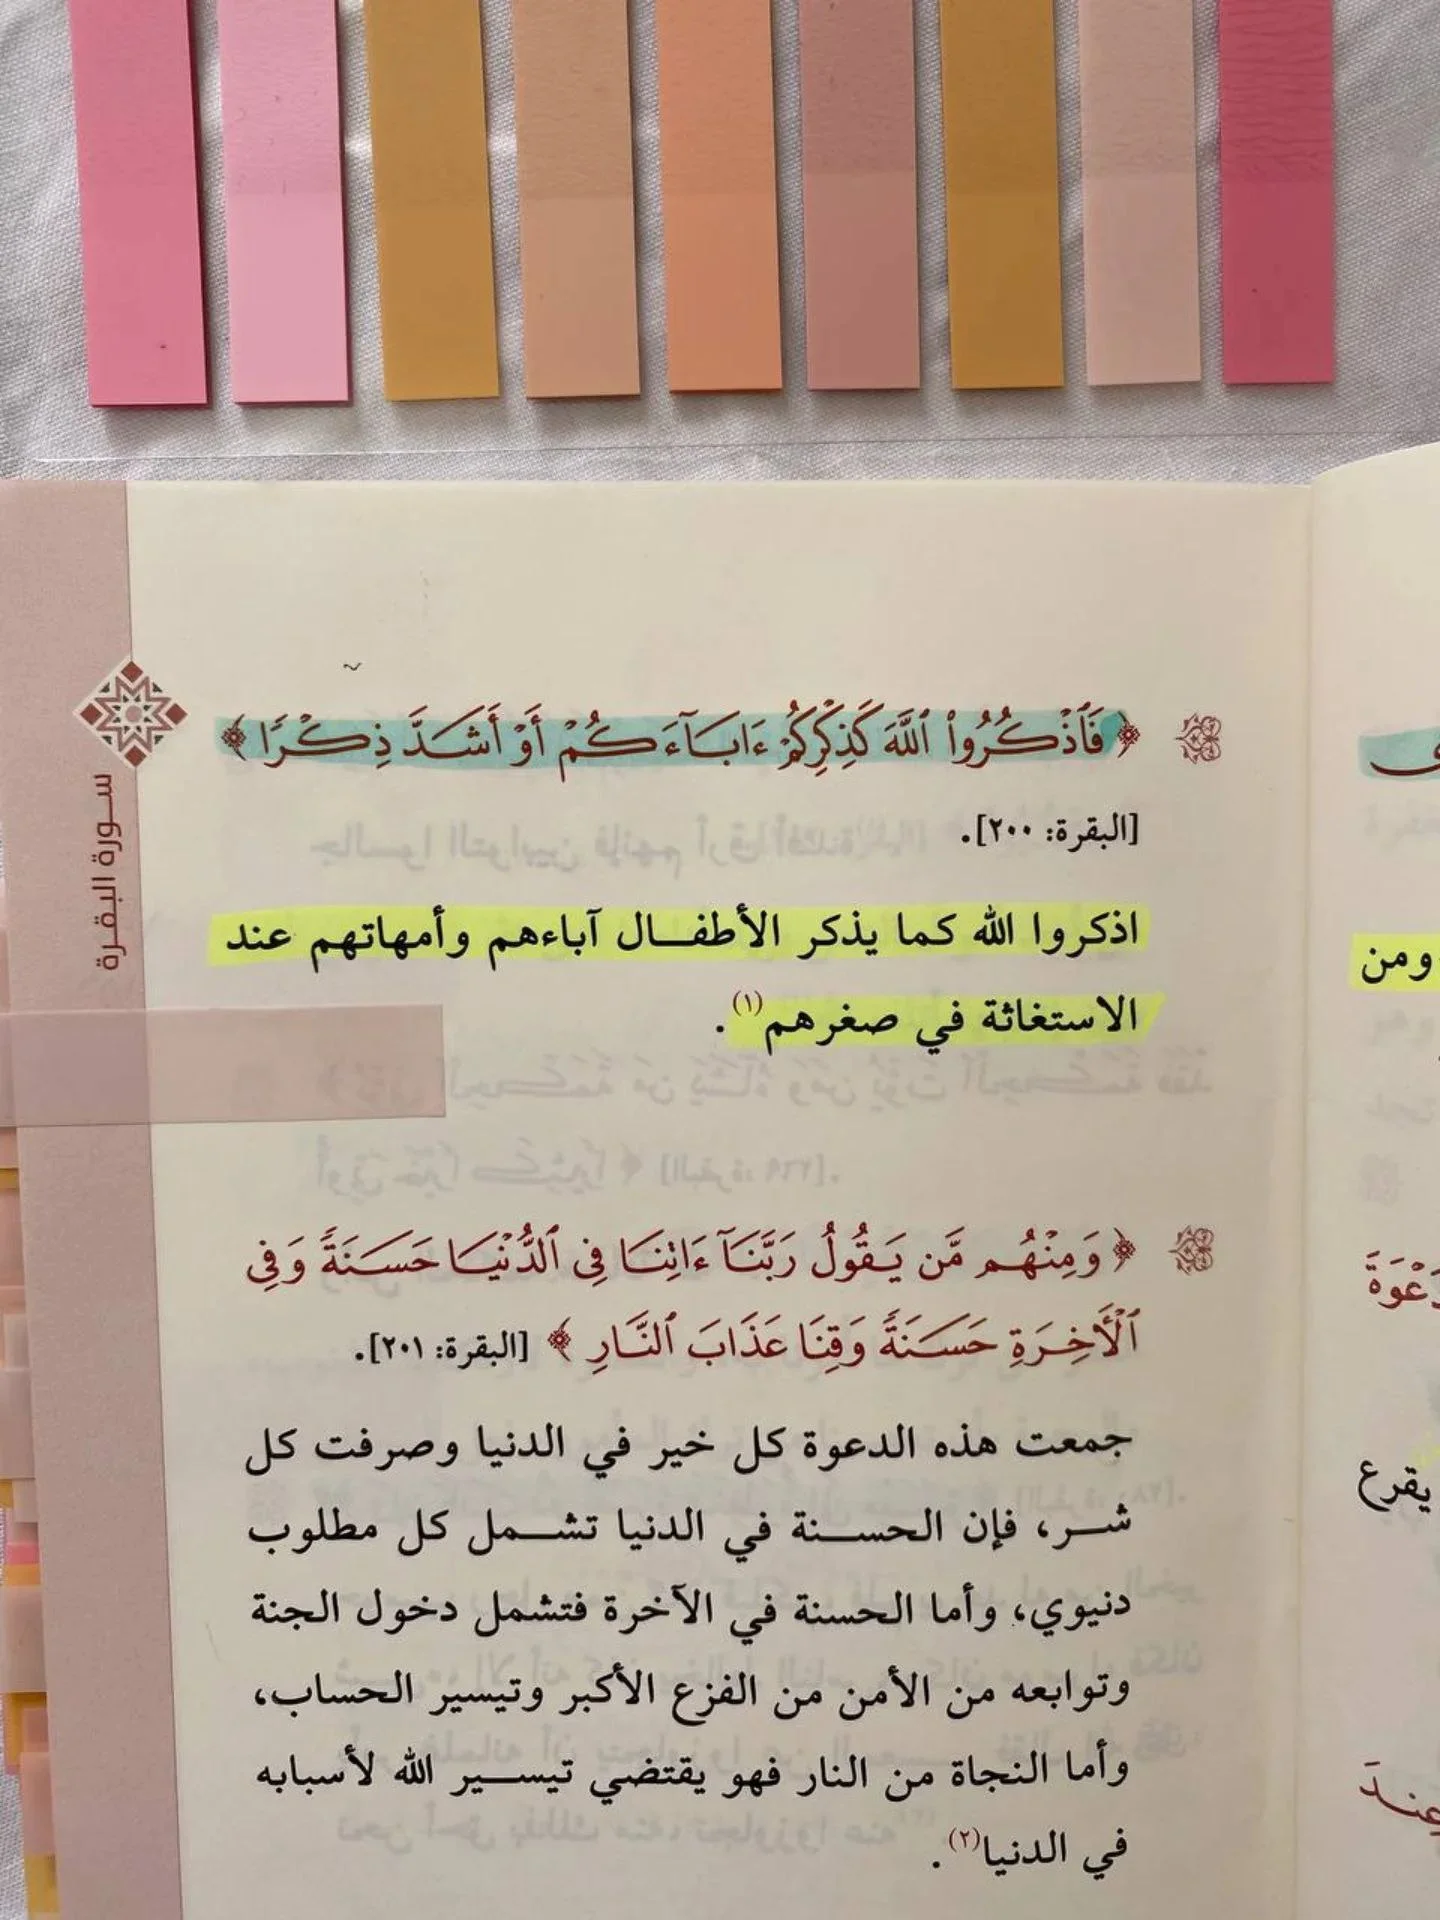 سورة البقرة
﴿فَٱذۡكُرُواْ ٱللَّهَ كَذِكۡرِكُمۡ ءَابَآءَكُمۡ أَوۡ أَشَدَّ ذِكۡرٗا﴾
[البقرة: ٢٠٠].
اذكروا الله كما يذكر الأطفال آباءهم وأمهاتهم عند
الاستغاثة في صغرهم(١).
﴿وَمِنۡهُم مَّن يَقُولُ رَبَّنَآ ءَاتِنَا فِي ٱلدُّنۡيَا حَسَنَةٗ وَفِي
ٱلۡأٓخِرَةِ حَسَنَةٗ وَقِنَا عَذَابَ ٱلنَّارِ﴾ [البقرة: ٢٠١].
جمعت هذه الدعوة كل خير في الدنيا وصرفت كل
شر، فإن الحسنة في الدنيا تشمل كل مطلوب
دنيوي، وأما الحسنة في الآخرة فتشمل دخول الجنة
وتوابعه من الأمن من الفزع الأكبر وتيسير الحساب،
وأما النجاة من النار فهو يقتضي تيسير الله لأسبابه
في الدنيا(٢).
ومن
يقرع